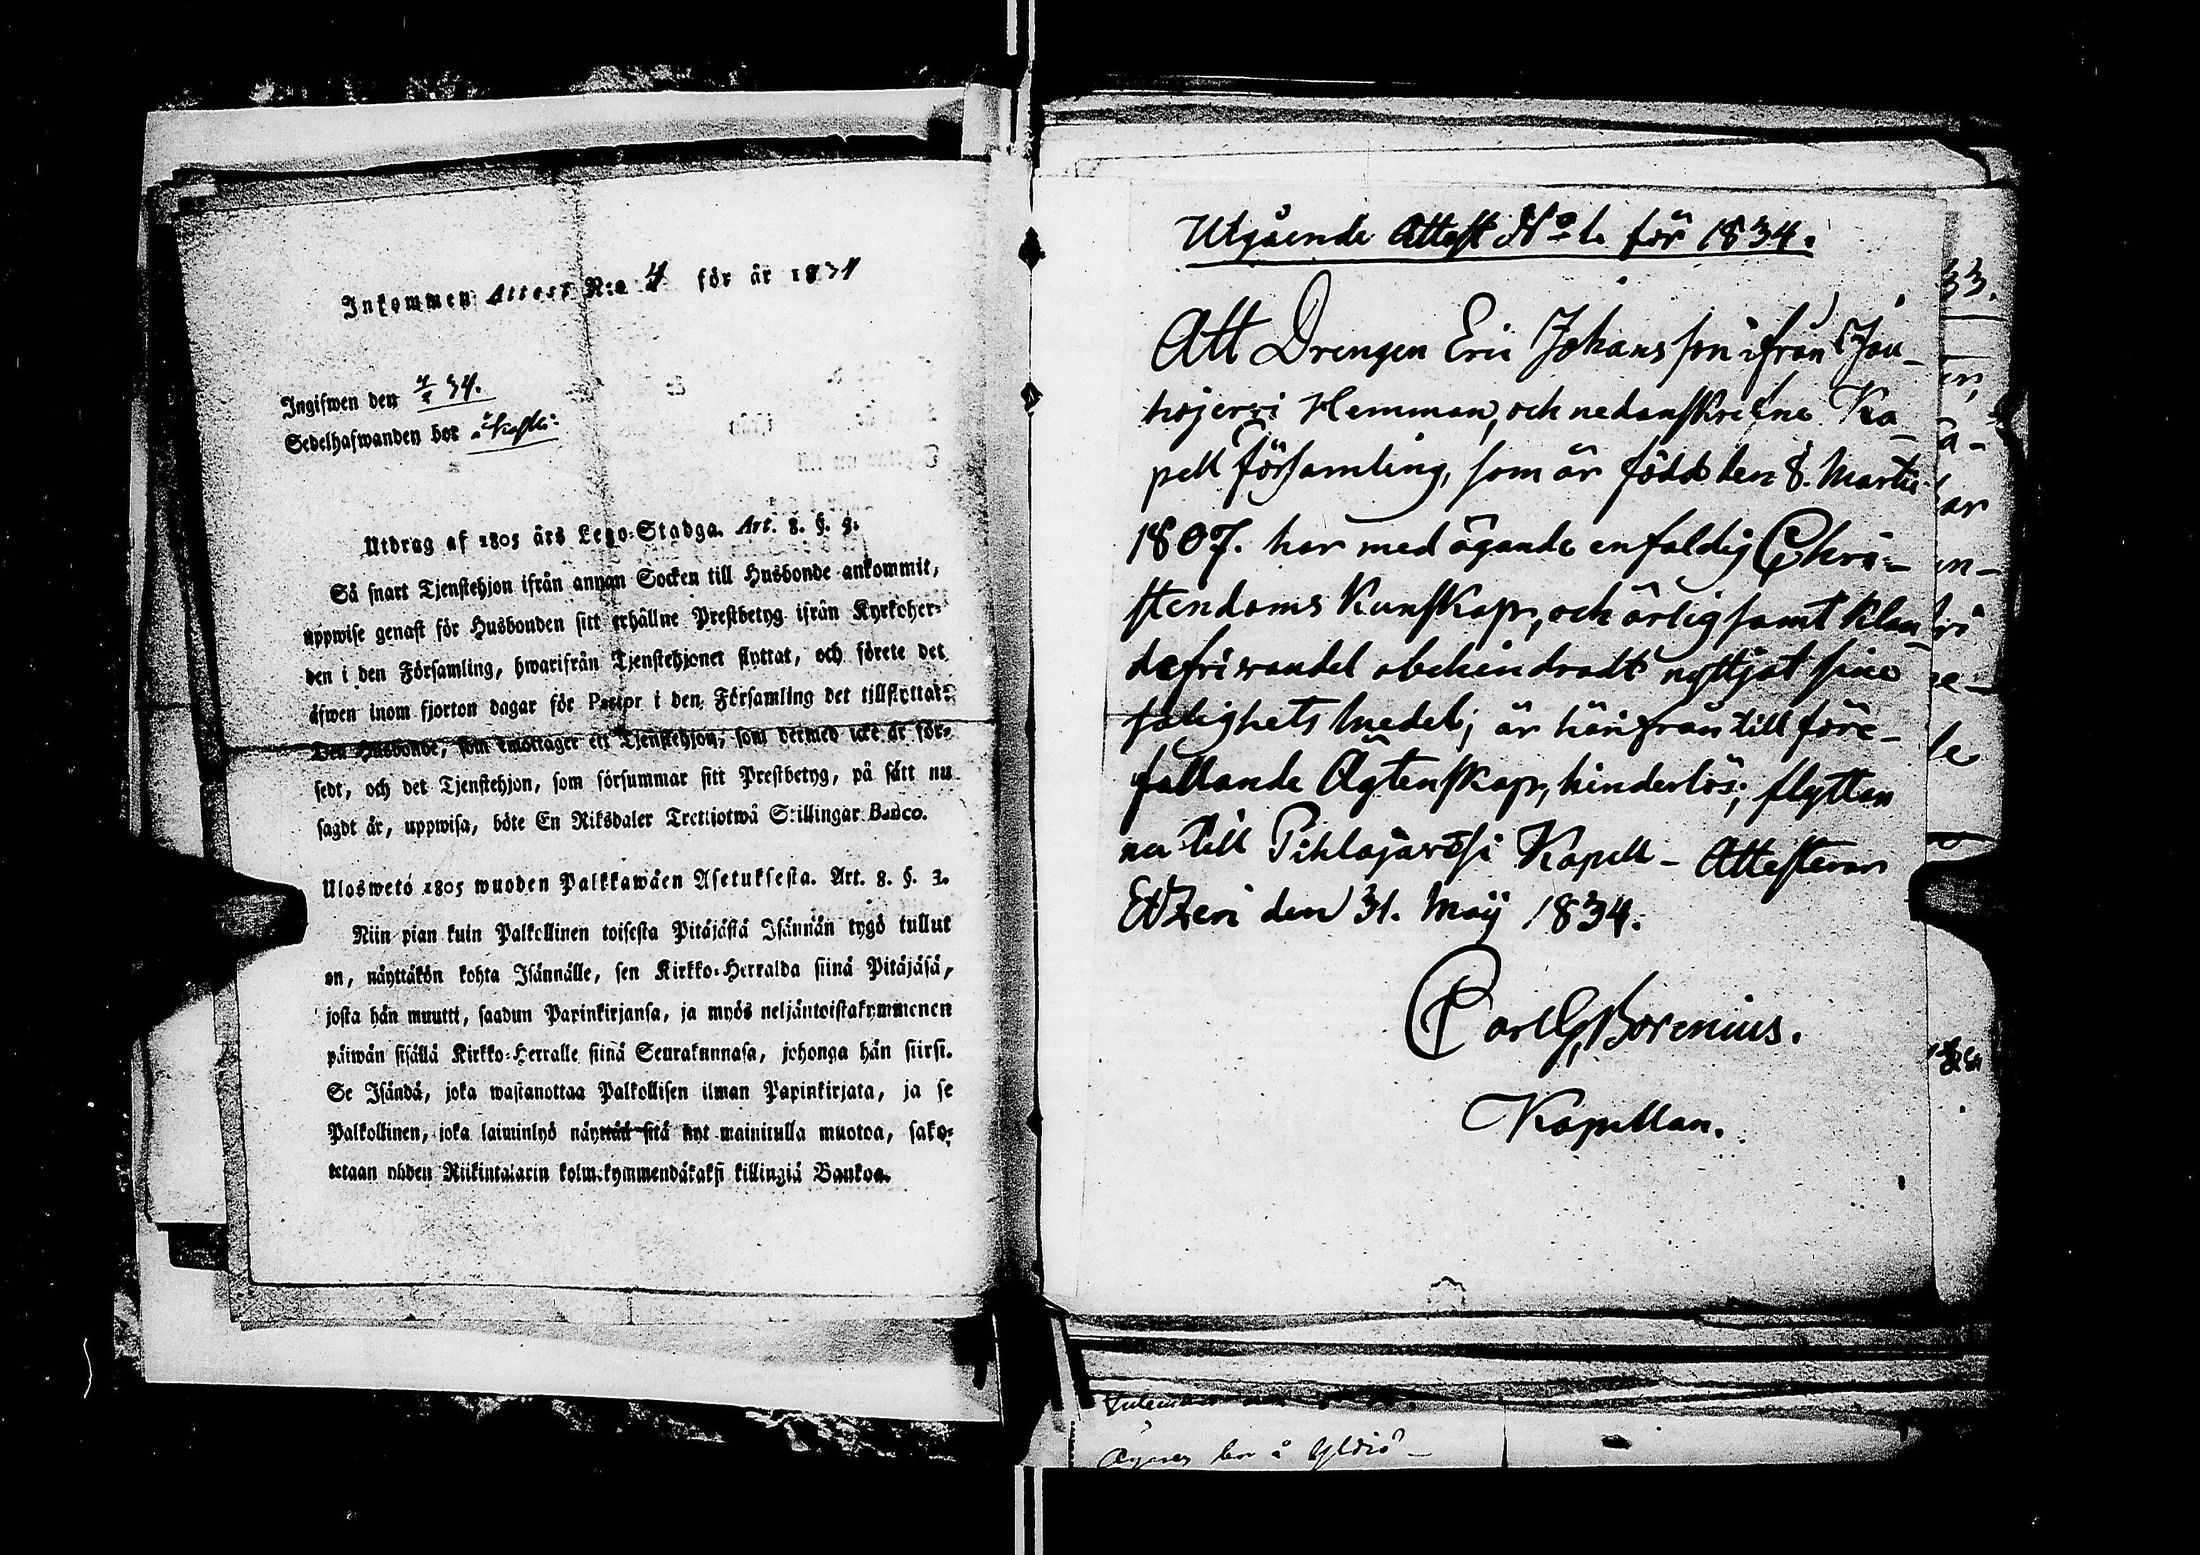 Inkommen Attest N:o 4 för år 1834
Ingifwen den 34.
Sedelhafwanden bor å
Utdrag af 1805 års Lego-Stadga. Art. 8. §. 3.
Så snart Tjenstehjon ifrån annan Socken till Husbonde ankommit,
uppwise genast för Husbonden sitt erhållne Prestbetyg ifrån Kyrkoher-
den i den Församling, hwarifrån Tjenstehjonet flyttat, och förete det
äfwen inom fjorton dagar för Pastor i den Församling det tillflyttat.
Den Husbonde, som emottager ett Tjenstehjon, som dermed icke är för-
sedt, och det Tjenstehjon, som försummar sitt Prestbetyg, på sätt nu
sagdt är, uppwisa, böte En Riksdaler Trettiotwå Skillingar Banco.
Uloswetö 1805 wuoden Palkkawäen Asetuksesta. Art. 8. §. 3.
Niin pian kuin Palkollinen toisesta Pitäjästä Isännän tygö tullut
on, näyttäkön kohta Isännälle, sen Kirkko-Herralda siinä Pitäjäsä,
josta hän muutti, saadun Papinkirjansa, ja myös neljäntoistakymmenen
päiwän sisällä Kirkko-Herralle siinä Seurakunnasa, johonga hän siirsi.
Se Isändä, joka wastanottaa Palkollisen ilman Papinkirjata, ja se
Palkollinen, joka laiminlyö näyttää sitä nyt mainitulla muotoa, sako-
tetaan yhden Riikintalarin kolmekymmendäkaksi killingiä Bankoa.
Utgående Attest N:o 1. för 1834.
Att Drengen Eric Johansson ifrån Jou-
hojerfvi Hemman, och nedanskrefne Ka-
pell Församling, som är född den 8. Martii
1807. har med ägande enfaldig Chri-
stendoms Kunskap, och ärlig samt klan-
derfri vandel obehindradt nyttjat sine
salighets medel; är härifrån till före-
fallande Ägtenskap, hinderlös; flyttar
nu till Pihlajavesi Kapell – Attesterar
Etzeri den 31. Maÿ 1834.
Carl G, Borenius.
Kapellan.
33.
bor å